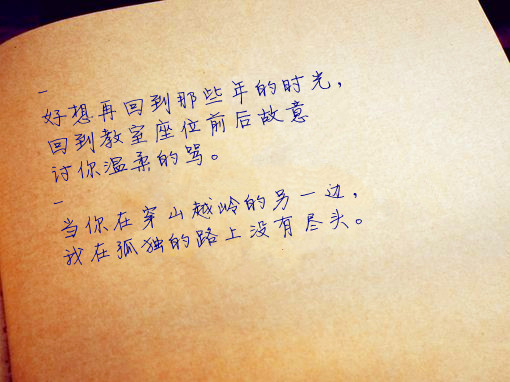 –
好想再回到那些年的时光，
回到教室座位前后故意
讨你温柔的骂。
–
当你在穿山越岭的另一边，
我在孤独的路上没有尽头。